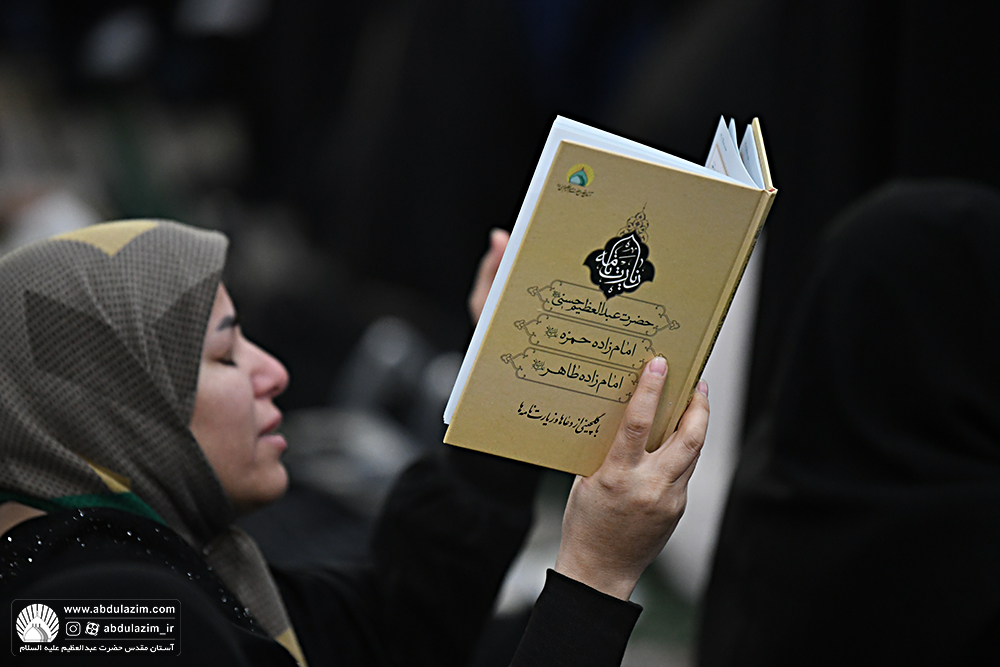 زیارت نامه
حضرت عبدالعظیم حسنی
امامزاده حمزه
امامزاده طاهر
با گلچینی از دعاها و زیارت نامه‌ها
www.abdulazim.com
abdulazim_ir
آستان مقدس حضرت عبدالعظیم علیه السلام